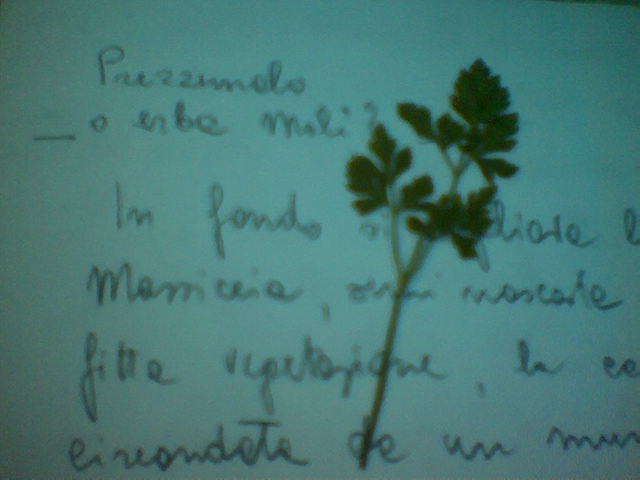 Prezzemolo
— o erba Moli?
In fondo
Massiccia, semi nascosta
fitta vegetazione, la
circondata da un